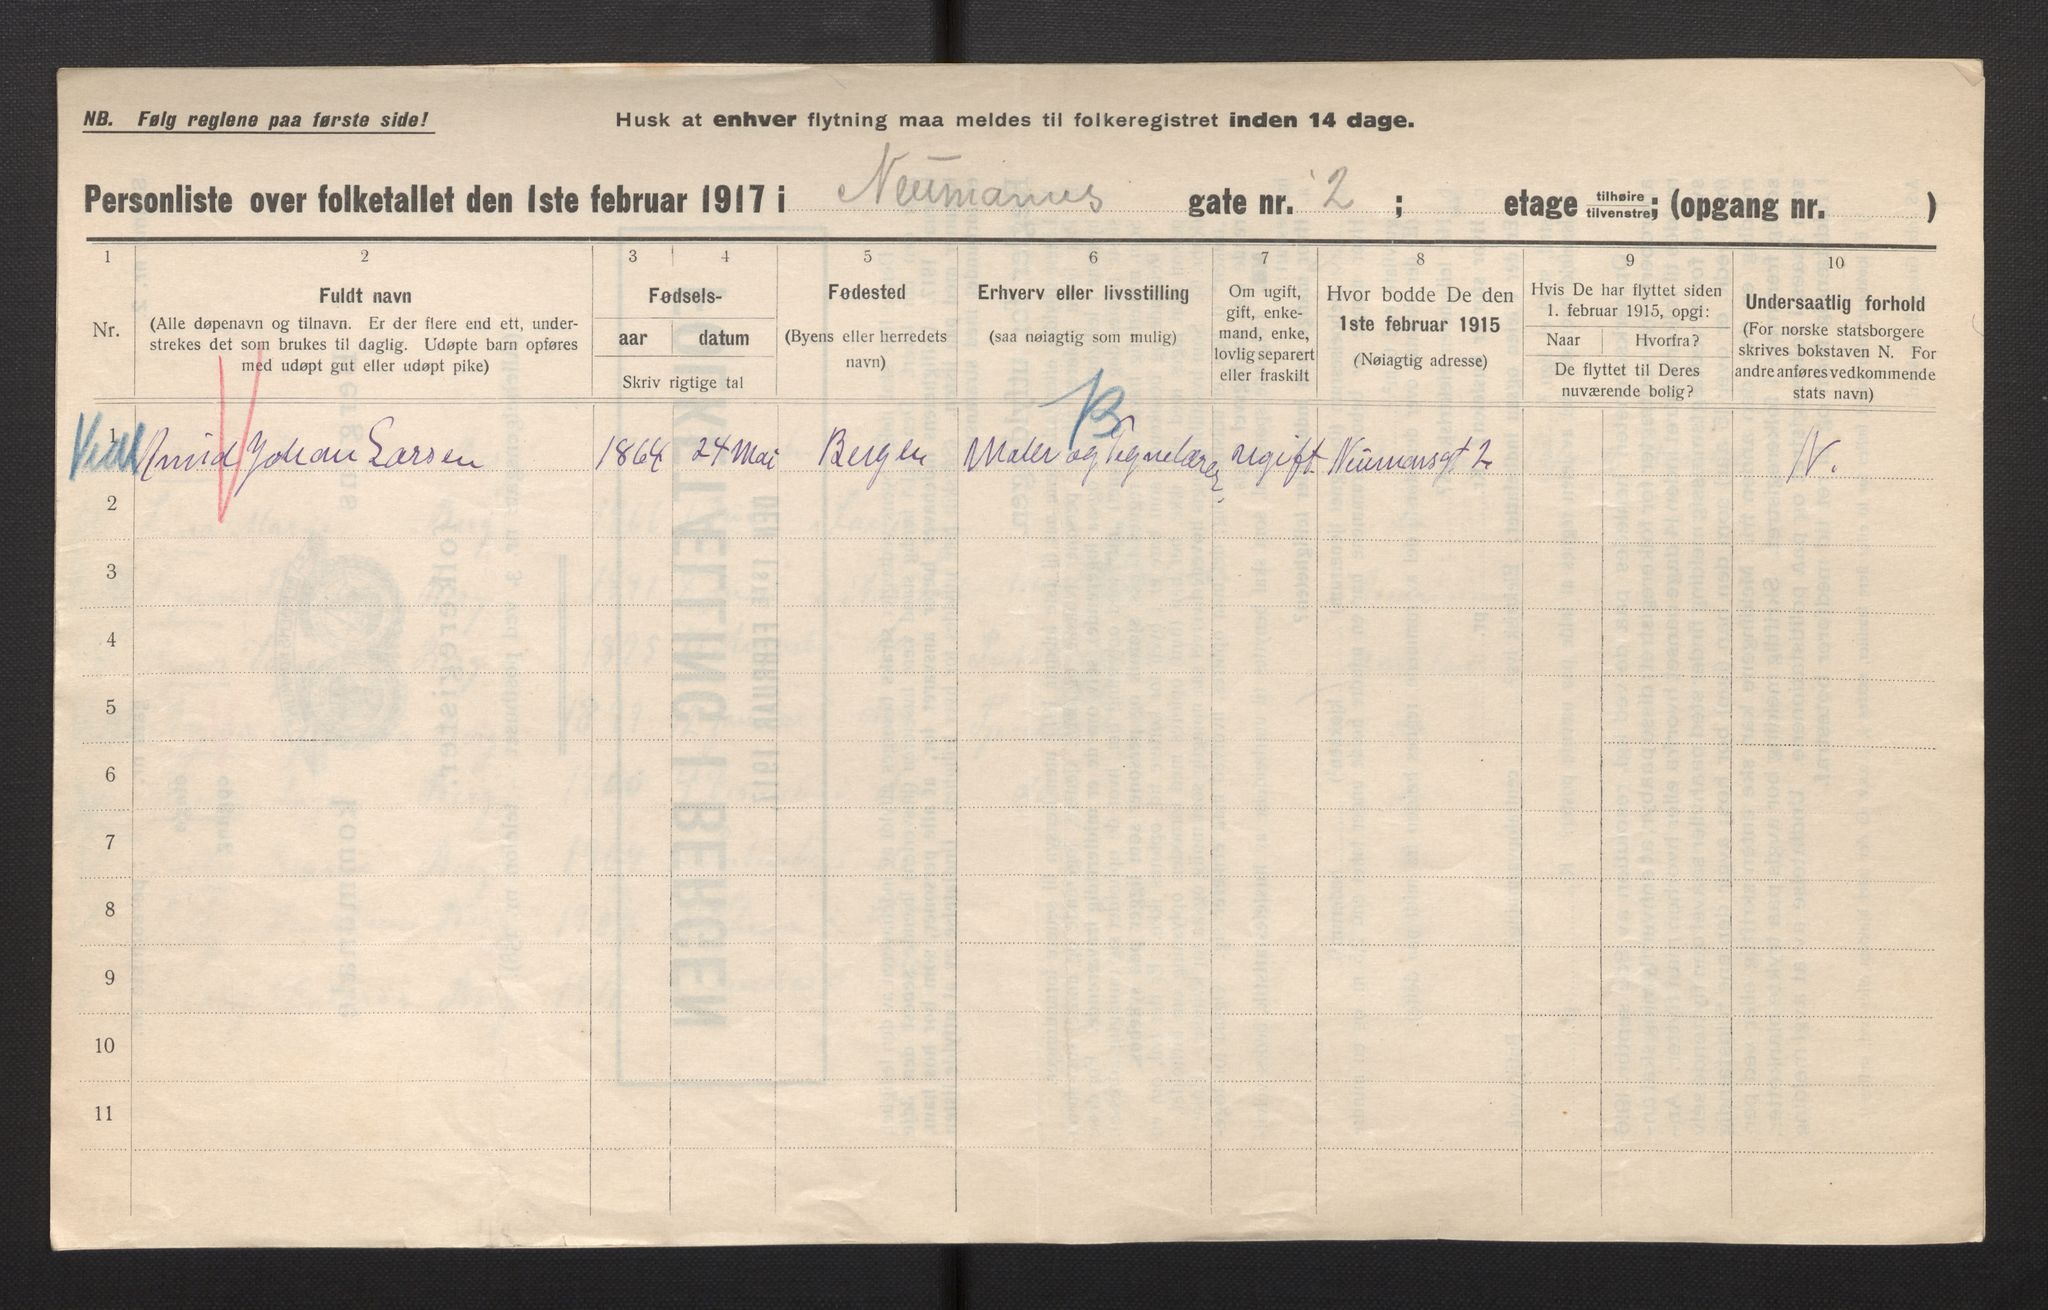 NB. Følg reglene paa første side!
Husk at enhver flytning maa meldes til folkeregistret inden 14 dage.
Personliste over folketallet den 1ste februar 1917 i Neumanns gate nr. 2 ; etage tilhøire/tilvenstre; (opgang nr. )
1 2 3 4 5 6 7 8 9 10
Nr.
Fuldt navn
(Alle døpenavn og tilnavn. Er der flere end ett, under-
strekes det som brukes til daglig. Udøpte barn opføres
med udøpt gut eller udøpt pike)
Fødsels-
aar datum
Skriv rigtige tal
Fødested
(Byens eller herredets
navn)
Erhverv eller livsstilling
(saa nøiagtig som mulig)
Om ugift,
gift, enke-
mand, enke,
lovlig separert
eller fraskilt
Hvor bodde De den
1ste februar 1915
(Nøiagtig adresse)
Hvis De har flyttet siden
1. februar 1915, opgi:
Naar Hvorfra?
De flyttet til Deres
nuværende bolig?
Undersaatlig forhold
(For norske statsborgere
skrives bokstaven N. For
andre anføres vedkommende
stats navn)
B
1 Johan Larsen 1864 24 Mai Bergen Maler og Tegnelærer ugift Neumansgt 2 N.
2
3
4
5
6
7
8
9
10
11